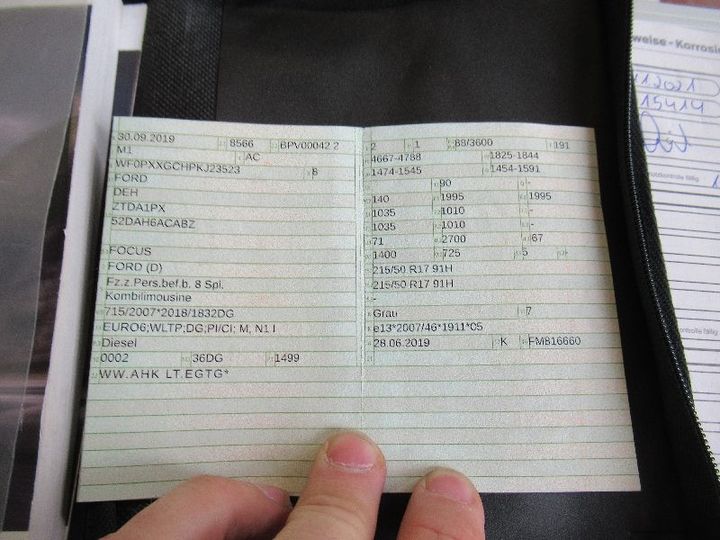 30.09.2019 8566 BPV00042 2
M1 AC
WF0PXXGCHPKJ23523 8
FORD
DEH
ZTDA1PX
52DAH6ACABZ
FOCUS
FORD (D)
Fz.z.Pers.bef.b. 8 Spl.
Kombilimousine
715/2007*2018/1832DG
EURO6;WLTP;DG;PI/CI; M, N1 I
Diesel
0002 36DG 1499
WW.AHK LT.EGTG*
2 1 88/3600 191
4667-4788 1825-1844
1474-1545 1454-1591
90 -
140 1995 1995
1035 1010 -
1035 1010 -
71 2700 67
1400 725 5 -
215/50 R17 91H
215/50 R17 91H
-
Grau 7
e13*2007/46*1911*05
28.06.2019 K FM816660
weise - Korrosio
11.2021
15414